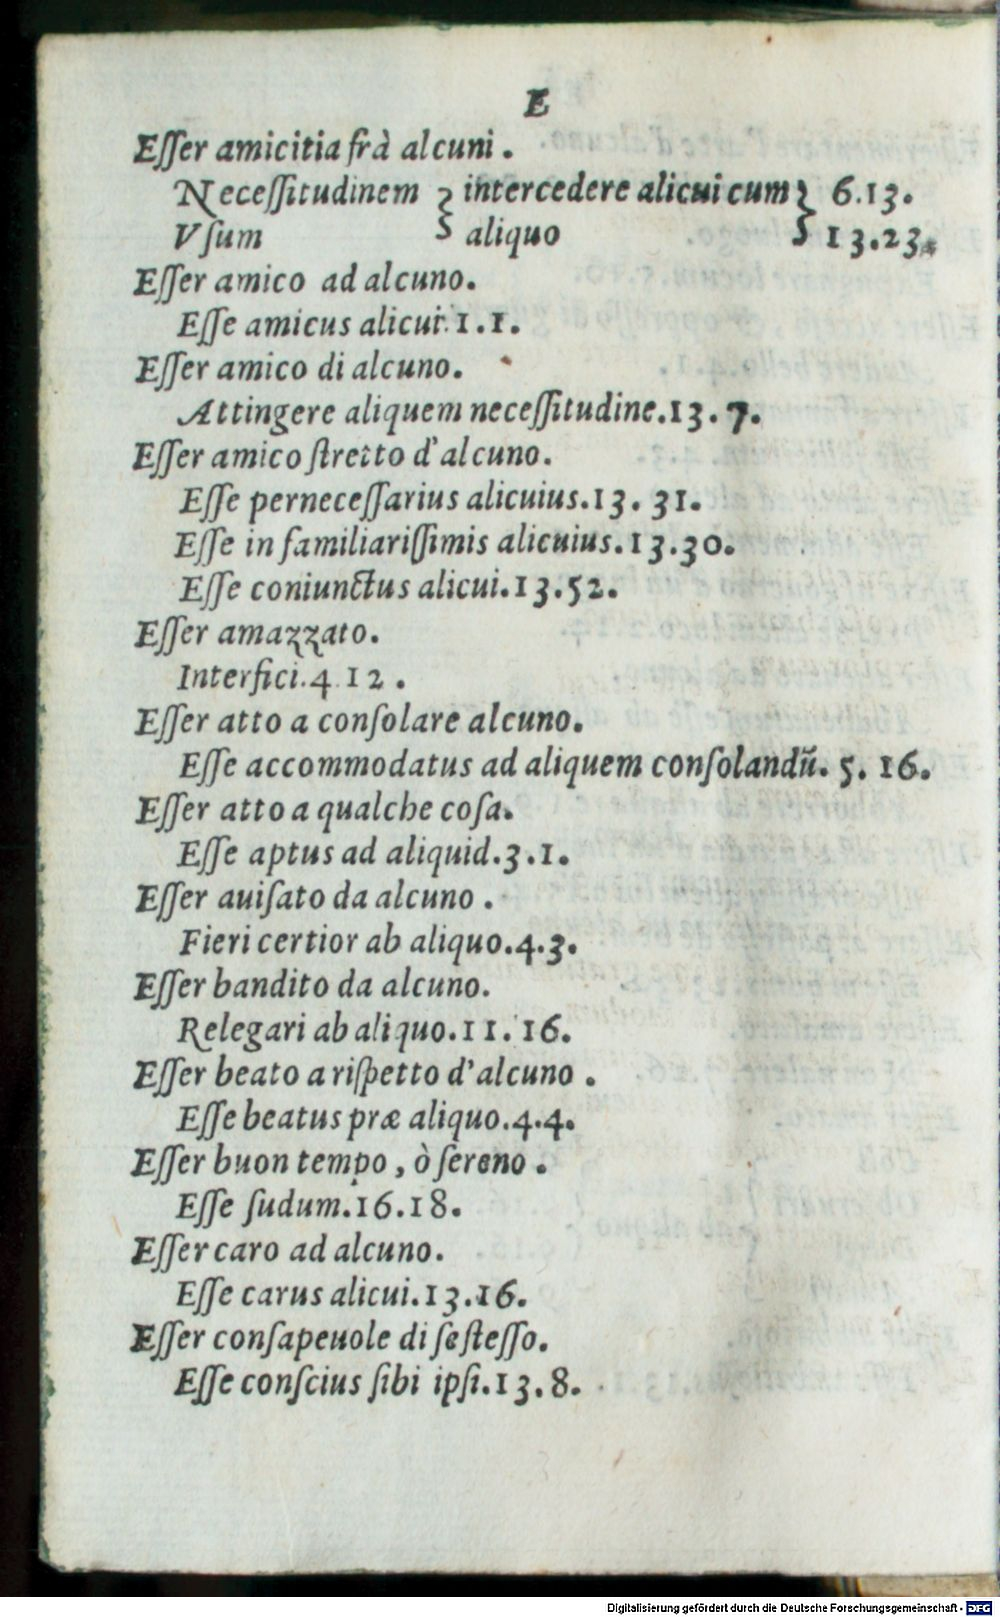 E
Eſſer amicitia frà alcuni .
Neceſſitudinem } intercedere alicui cum } 6.13.
Vſum } aliquo } 13.23.
Eſſer amico ad alcuno.
Eſſe amicus alicui. 1.1.
Eſſer amico di alcuno.
Attingere aliquem neceſſitudine.13.7.
Eſſer amico ſtretto d'alcuno.
Eſſe perneceſſarius alicuius.13. 31.
Eſſe in familiariſſimis alicuius.13.30.
Eſſe coniunctus alicui.13.52.
Eſſer amazzato.
Interfici.4 12 .
Eſſer atto a conſolare alcuno.
Eſſe accommodatus ad aliquem conſolandũ. 5. 16.
Eſſer atto a qualche coſa.
Eſſe aptus ad aliquid.3.1.
Eſſer auiſato da alcuno .
Fieri certior ab aliquo.4.3.
Eſſer bandito da alcuno.
Relegari ab aliquo.11. 16.
Eſſer beato a riſpetto d'alcuno .
Eſſe beatus præ aliquo.4.4.
Eſſer buon tempo , ò ſereno .
Eſſe ſudum.16.18.
Eſſer caro ad alcuno.
Eſſe carus alicui.13.16.
Eſſer conſapeuole di ſe ſteſſo.
Eſſe conſcius ſibi ipſi.13.8.
Digitalisierung gefördert durch die Deutsche Forschungsgemeinschaft - DFG